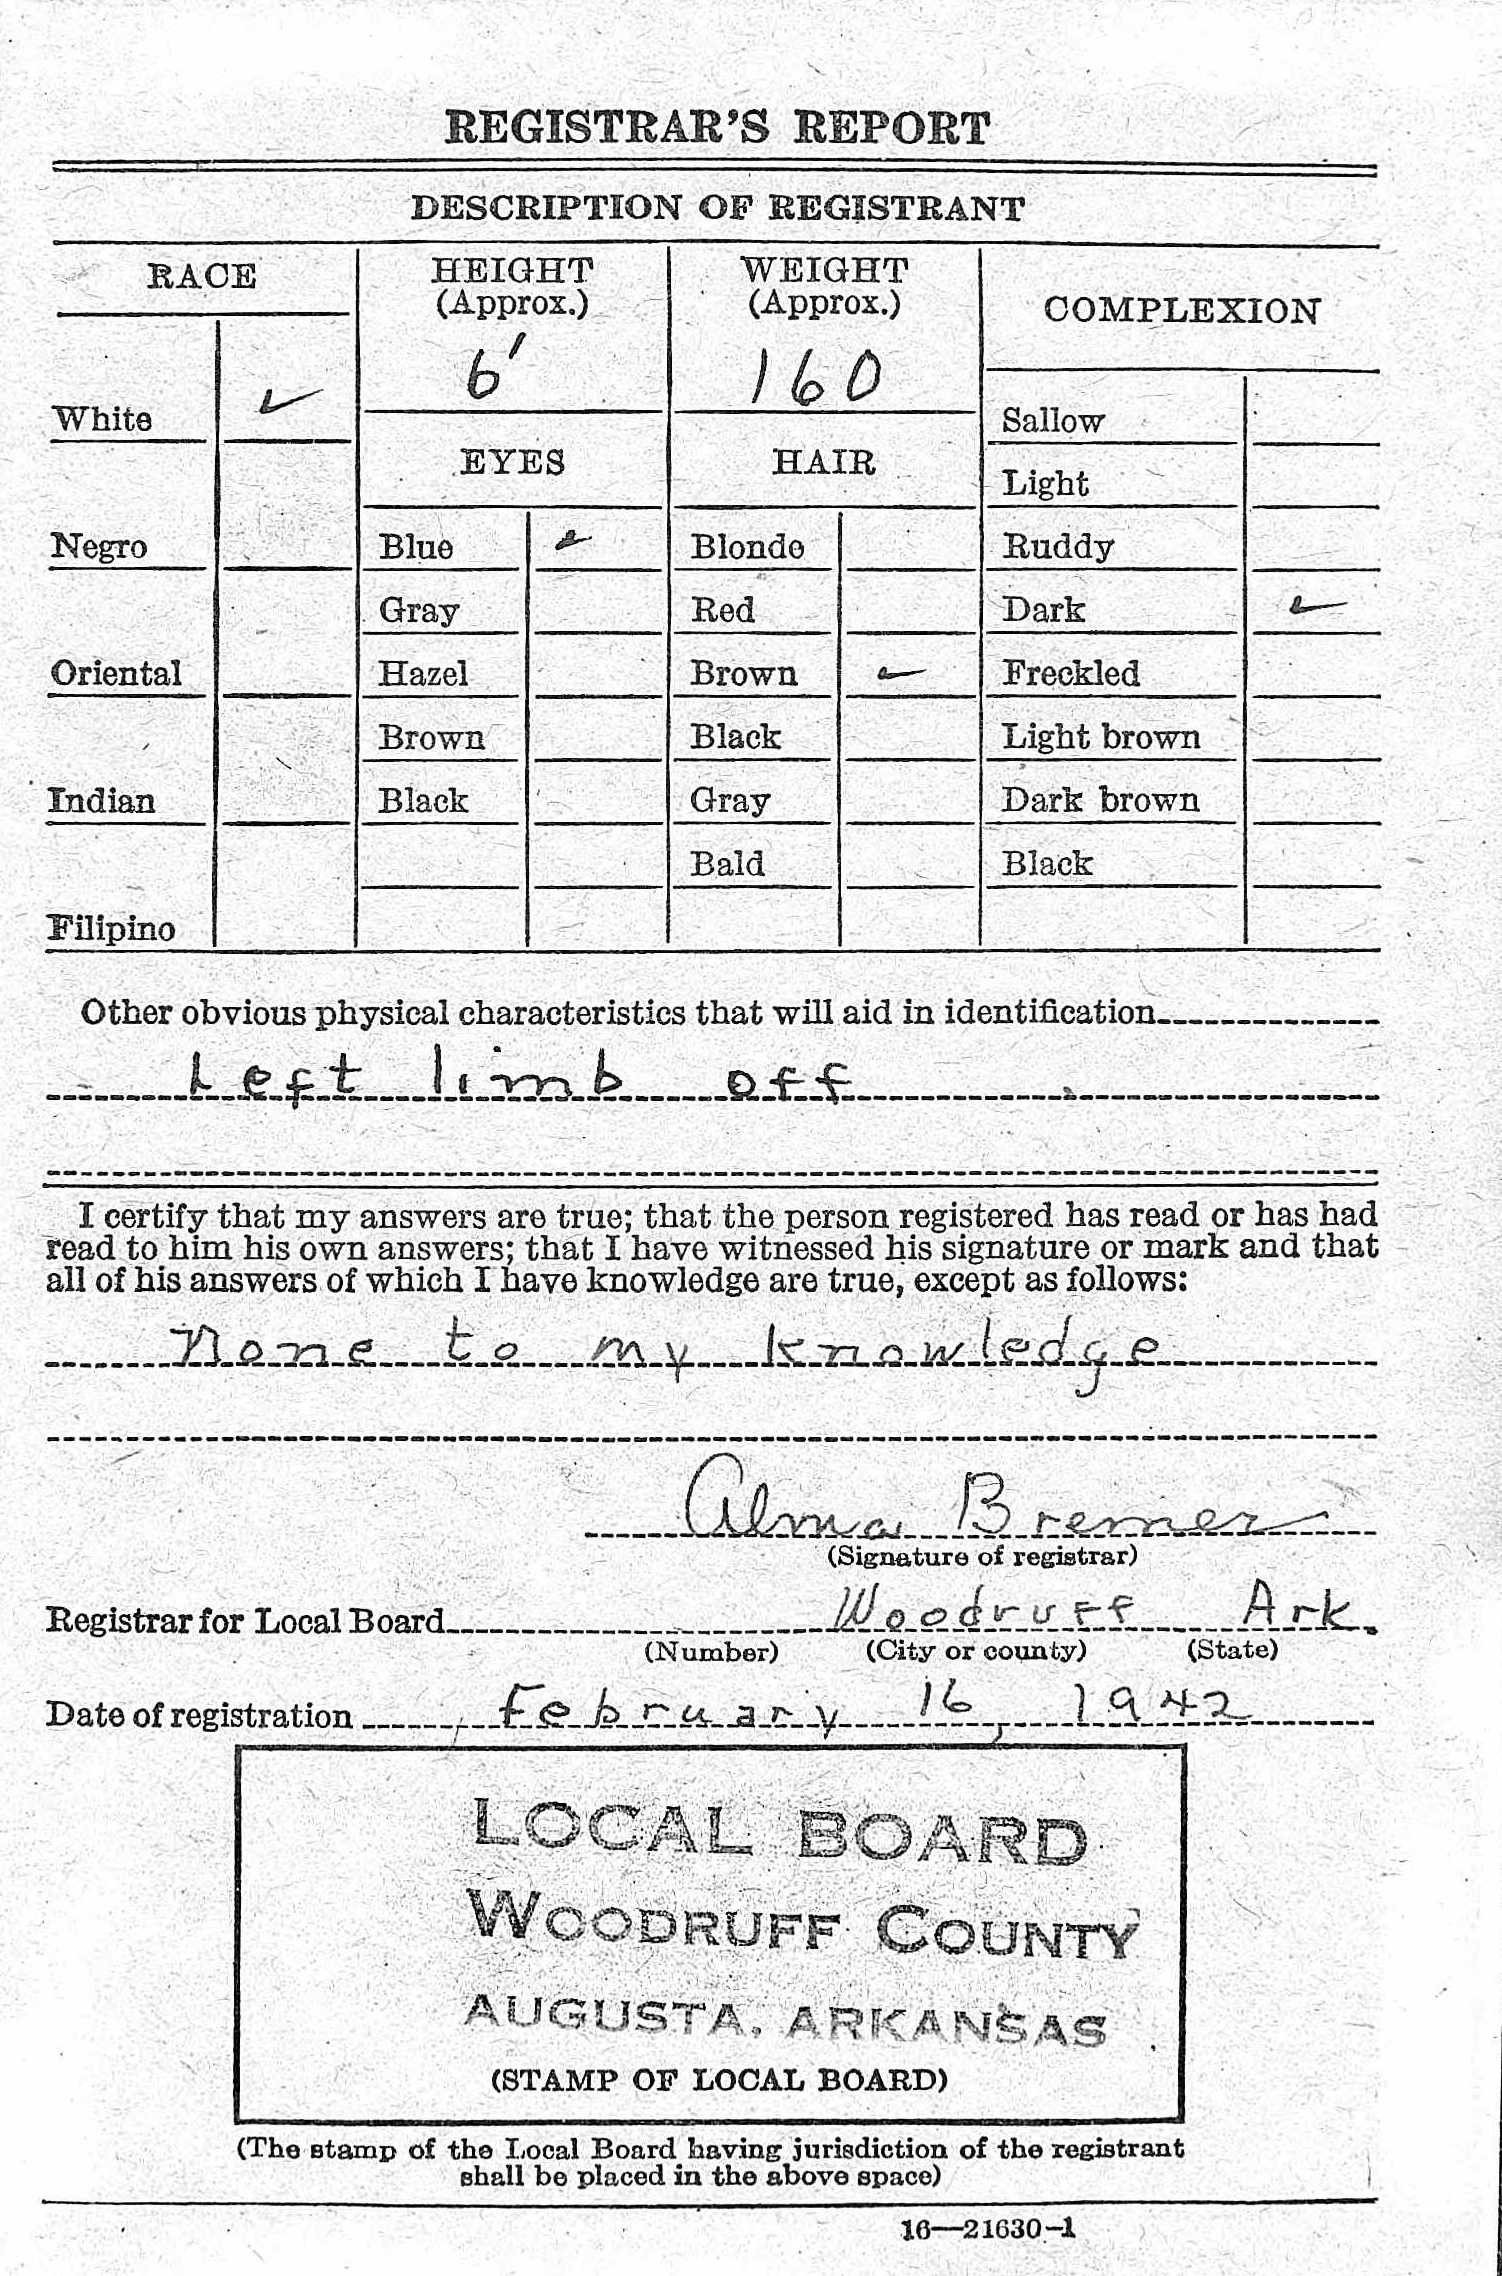 REGISTRAR'S REPORT
DESCRIPTION OF REGISTRANT
RACE
HEIGHT
(Approx.)
WEIGHT
(Approx.)
COMPLEXION
6'
160
White ✓
Sallow
EYES
HAIR
Light
Negro
Blue ✓
Blonde
Ruddy
Gray
Red
Dark ✓
Oriental
Hazel
Brown ✓
Freckled
Brown
Black
Light brown
Indian
Black
Gray
Dark brown
Bald
Black
Filipino
Other obvious physical characteristics that will aid in identification
Left limb off
I certify that my answers are true; that the person registered has read or has had
read to him his own answers; that I have witnessed his signature or mark and that
all of his answers of which I have knowledge are true, except as follows:
None to my knowledge
Alma Bremer
(Signature of registrar)
Registrar for Local Board Woodruff Ark.
(Number) (City or county) (State)
Date of registration February 16, 1942
LOCAL BOARD
WOODRUFF COUNTY
AUGUSTA, ARKANSAS
(STAMP OF LOCAL BOARD)
(The stamp of the Local Board having jurisdiction of the registrant
shall be placed in the above space)
16—21630-1